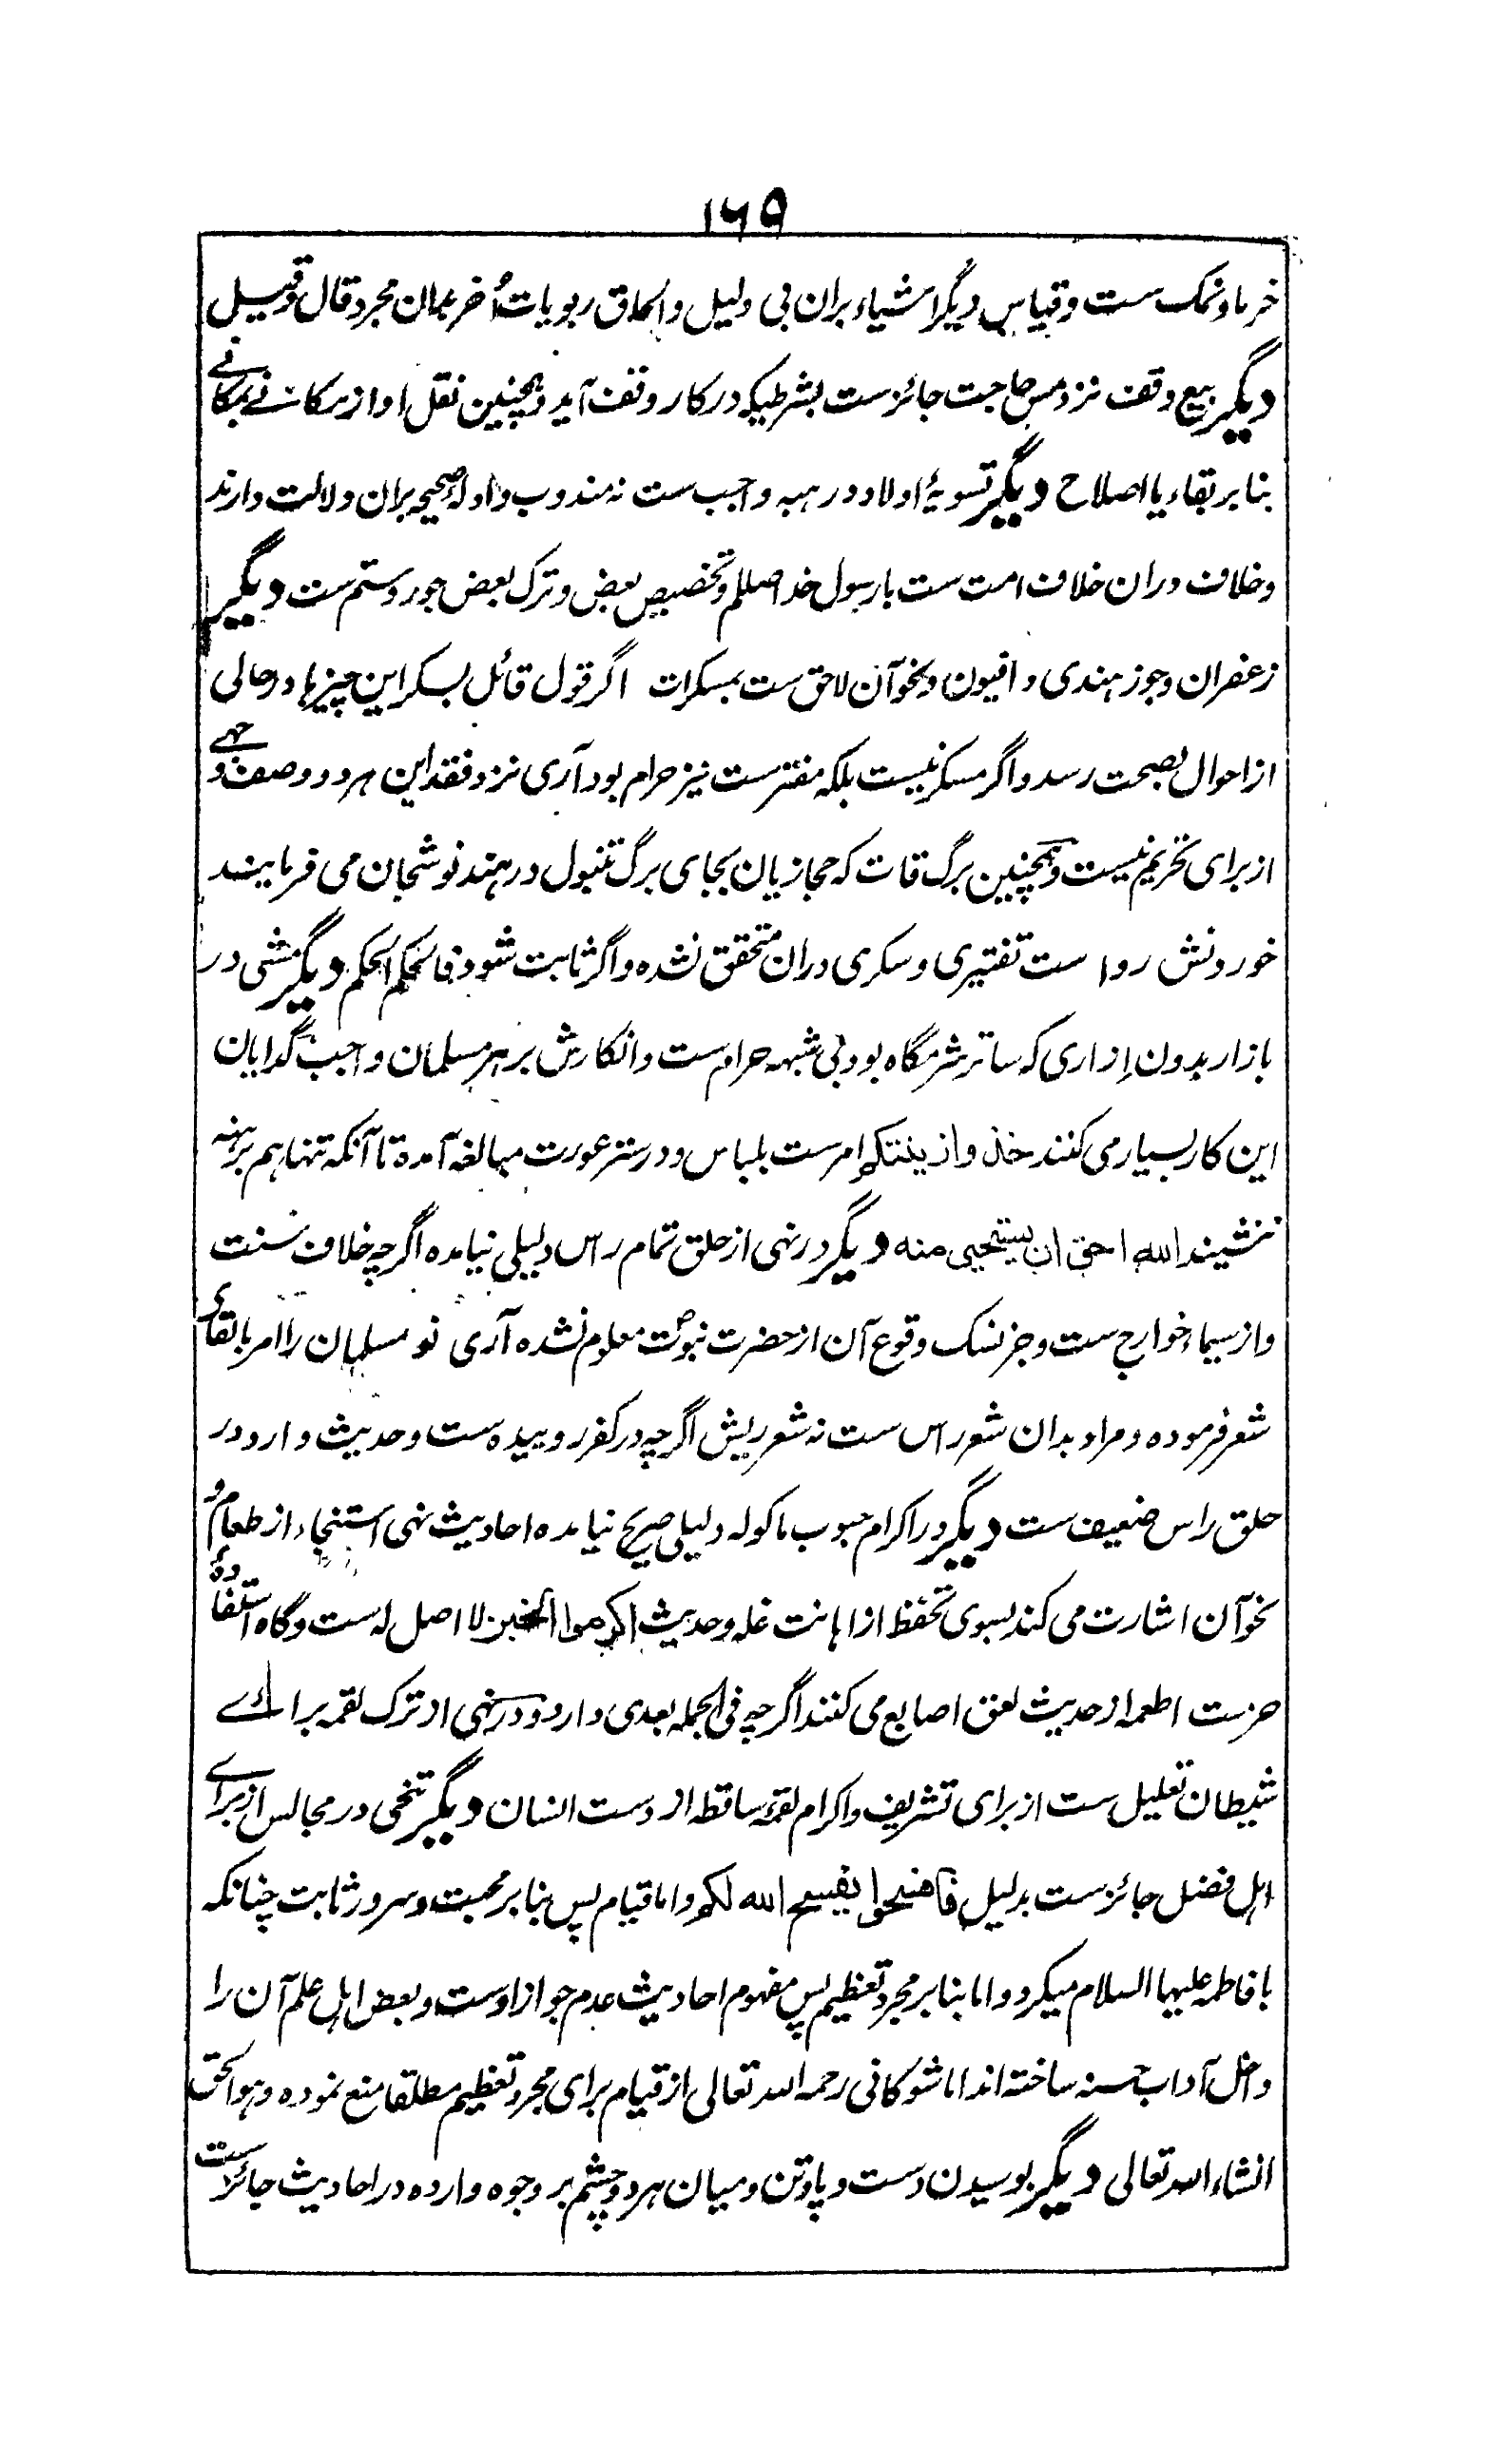 ۱۶۹
خرما و نمک ست و قیاس دیگر اشیاء بران بی دلیل و الحاق ربویات اُخر بمان مجرد قال و قیل
دیگر بیع وقف نزد مس حاجت جائز ست بشرطیکه در کار وقف آید و همچنین نقل او از مکانے بمکانے
بنا بر بقاء یا اصلاح دیگر تسویهٔ اولاد در هبه واجب ست نه مندوب و ادلهٔ صحیحه بران دلالت دارند
و خلاف دران خلاف امت ست با رسول خدا صللم و تخصیص بعض و ترک بعض جور و ستم ست دیگر
زعفران و جوز هندی و افیون و نحو آن لاحق ست بمسکرات اگر قول قائل بسکر این چیزها در حالی
از احوال بصحت رسد و اگر مسکر نیست بلکه مفتر ست نیز حرام بود آری نزد فقد این هر دو وصف وجهے
از برای تحریم نیست و همچنین برگ قات که حجازیان بجای برگ تنبول در هند نوشجان می فرمایند
خوردنش روا ست تفتیری و سکری دران متحقق نشده و اگر ثابت شود فالحکم الحکم دیگر مشی در
بازار بدون اِزاری که ساتر شرمگاه بود بی شبهه حرام ست و انکارش بر هر مسلمان واجب گدایان
این کار بسیار می کنند خذوا زینتکم امر ست بلباس و در ستر عورت مبالغه آمده تا آنکه تنها هم برهنه
ننشیند الله احق ان یستحیی منه دیگر در نهی از حلق تمام راس دلیلی نیامده اگرچه خلاف سنت
و از سیماء خوارج ست و جز نسک وقوع آن از حضرت نبوت معلوم نشده آری نو مسلمان را امر بالقای
شعر فرموده و مراد بدان شعر راس ست نه شعر ریش اگرچه در کفر روییده ست و حدیث وارد در
حلق راس ضعیف ست دیگر در اکرام حبوب ماکوله دلیلی صریح نیامده احادیث نهی استنجاء از طعام و
نحو آن اشارت می کند بسوی تحفظ از اهانت غله و حدیث اکرموا الخبز لا اصل له ست و گاه استفادهٔ
حرمت اطعمه از حدیث لعق اصابع می کنند اگرچه فی الجمله بعدی دارد و در نهی از ترک لقمه براے
شیطان تعلیل ست از برای تشریف و اکرام لقمهٔ ساقطه از دست انسان دیگر تنحی در مجالس از براے
اهل فضل جائز ست بدلیل فافسحوا یفسح الله لکم و اما قیام پس بنا بر محبت و سرور ثابت چنانکه
با فاطمه علیها السلام میکرد و اما بنا بر مجرد تعظیم پس مفهوم احادیث عدم جواز اوست و بعض اهل علم آن را
داخل آداب حسنه ساخته اند اما شوکانی رحمه الله تعالی از قیام برای مجرد تعظیم مطلقا منع نموده و هو الحق
انشاء الله تعالی دیگر بوسیدن دست و پا و تن و میان هر دو چشم بر وجوه وارده در احادیث جائز ست